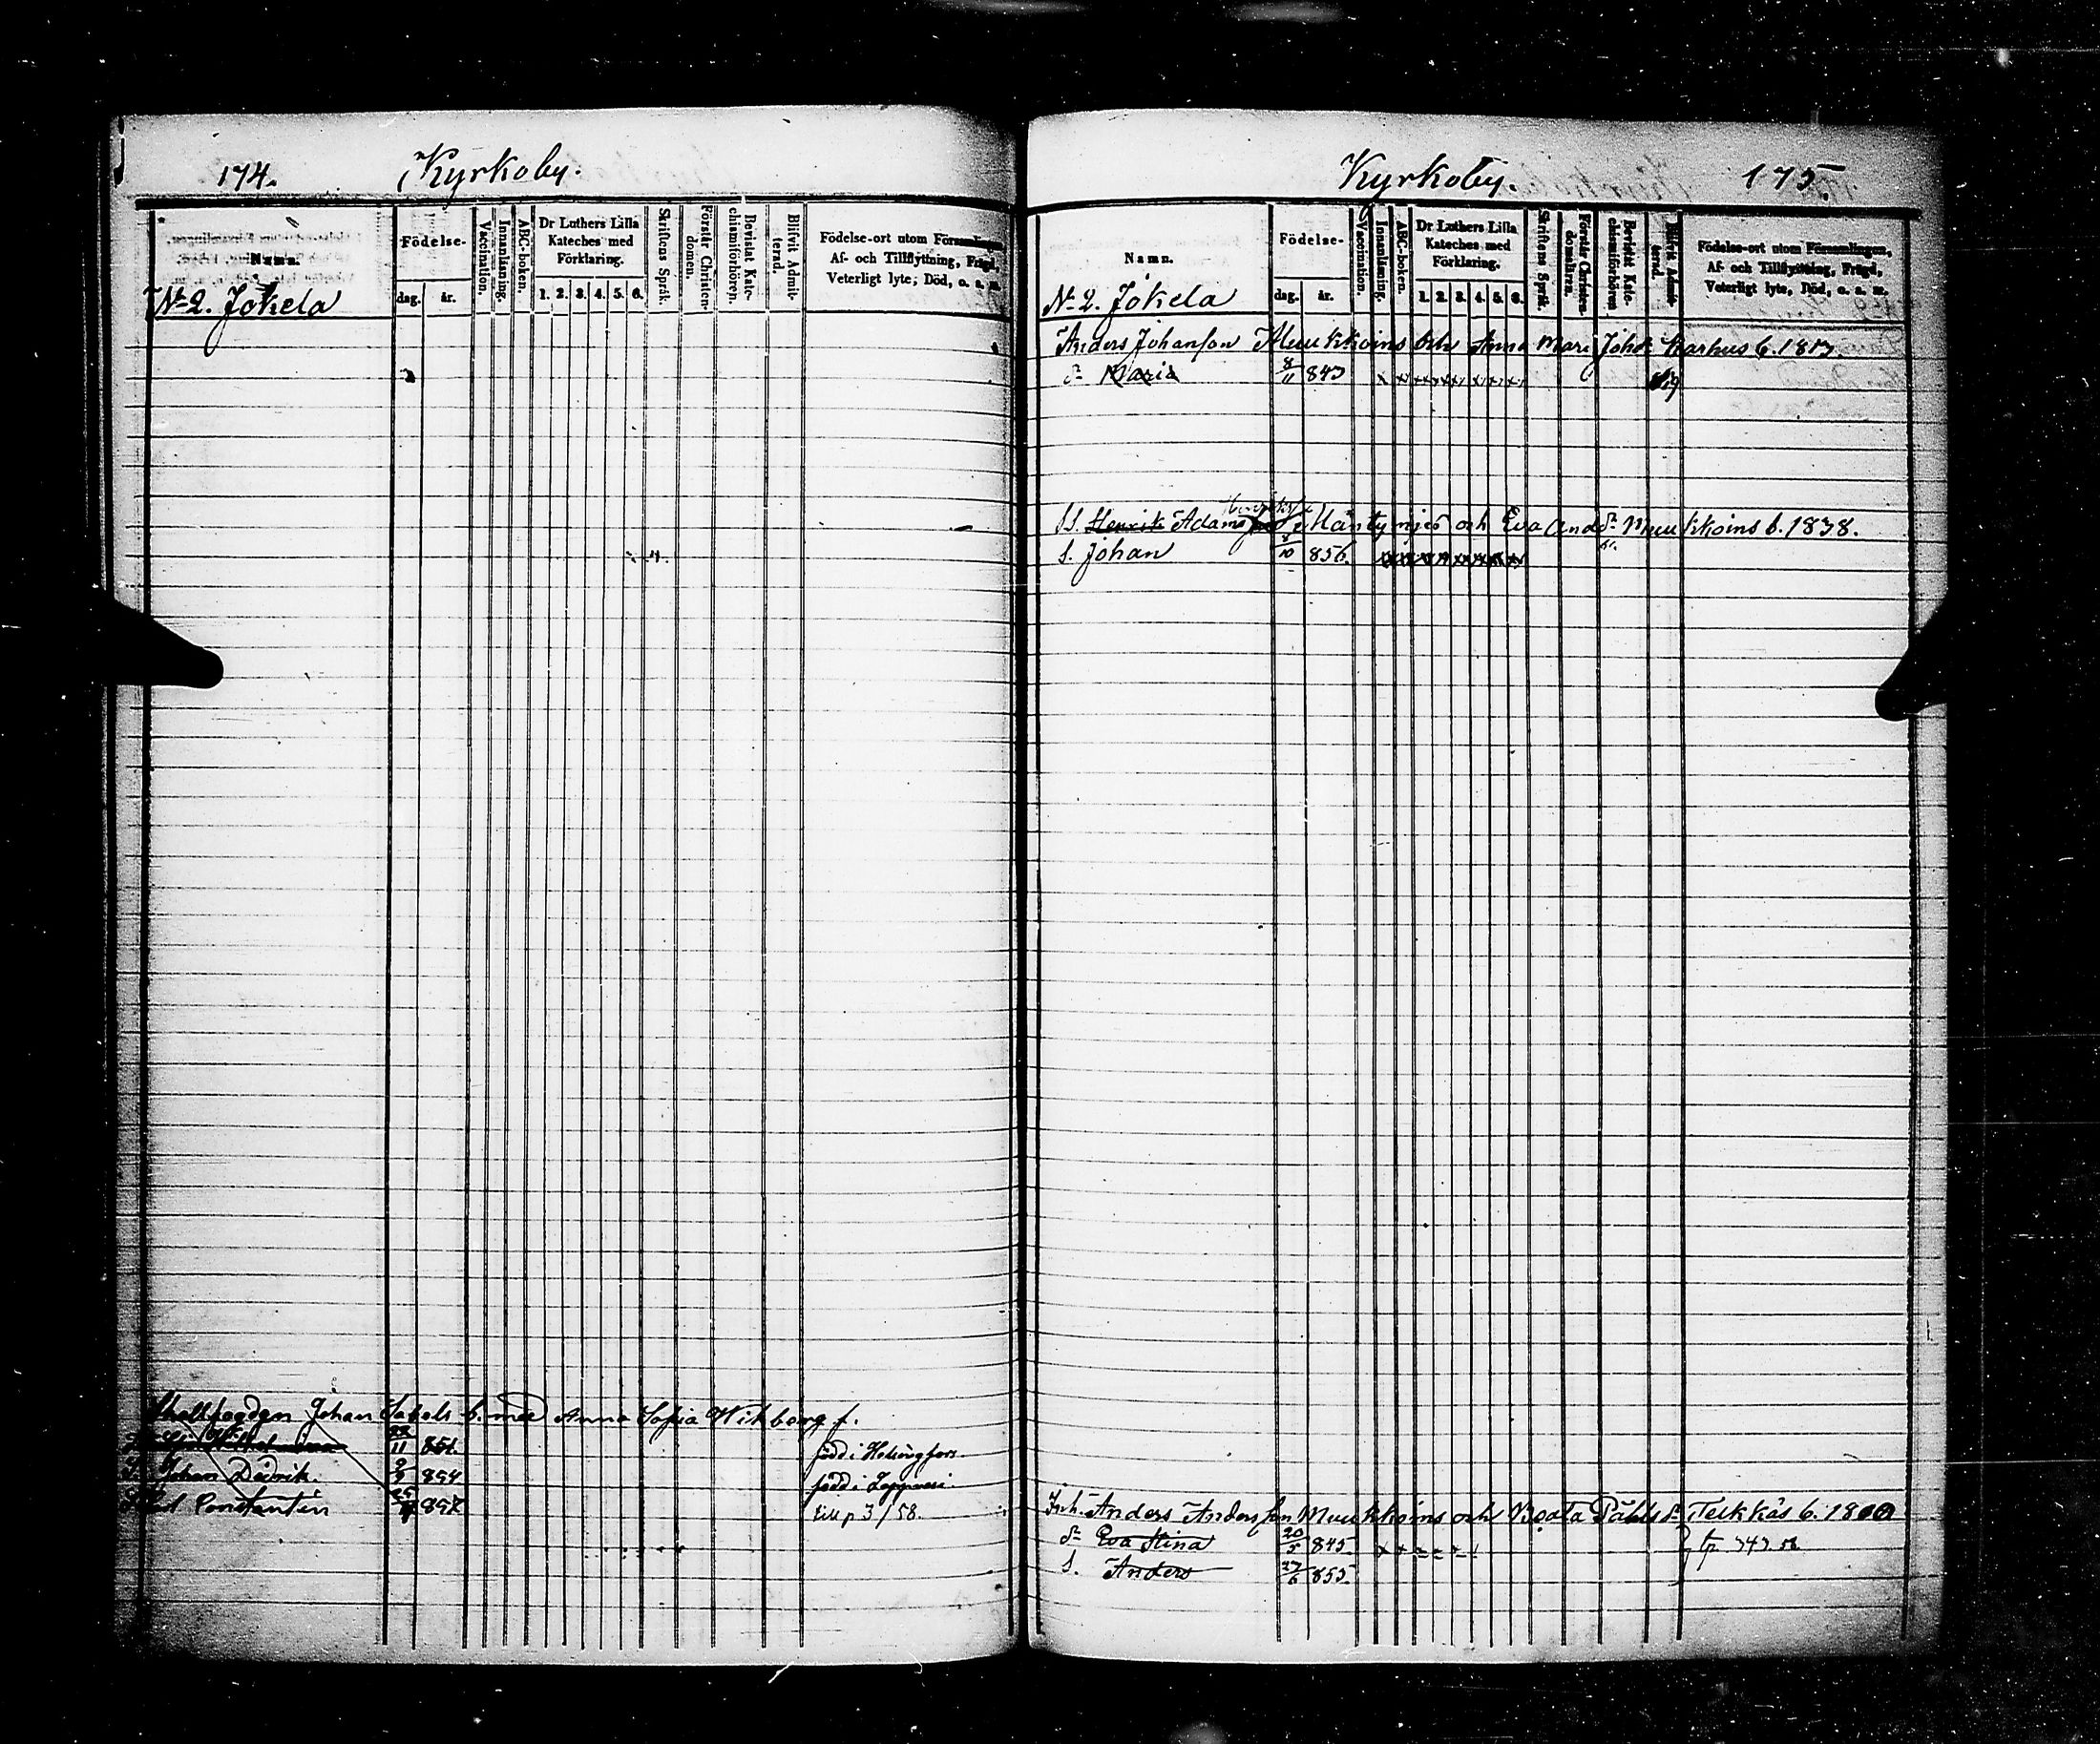 174.
Kyrkoby.
Namn.
Födelse-
dag. år.
Vaccination.
Innanläsning.
ABC-boken.
Dr Luthers Lilla
Kateches med
Förklaring.
1. 2. 3. 4. 5. 6.
Skriftens Språk.
Förstår Christen-
domen.
Bevistat Kate-
chismiförhören.
Blifvit Admit-
terad.
Födelse-ort utom Församlingen,
Af- och Tillflyttning, Frägd,
Veterligt lyte, Död, o. s. m.
No 2. Jokela
Johan Sabels b. med Anna Sofia Wikberg f.
11 851. född i Helsingfors.
Johan Didrik. 854 född i
Constantin till p 3/58.
Kyrkoby.
175.
Namn.
Födelse-
dag. år.
Vaccination.
Innanläsning.
ABC-boken.
Dr Luthers Lilla
Kateches med
Förklaring.
1. 2. 3. 4. 5. 6.
Skriftens Språk.
Förstår Christen-
domslära.
Bevistat Kate-
chismiförhören.
Blifvit Admit-
terad.
Födelse-ort utom Församlingen,
Af- och Tillflyttning, Frägd,
Veterligt lyte, Död, o. s. m.
No 2. Jokela
Anders Johansson Muukkoins och Anna Mari Joh. d:r Karhus b. 1817.
d:r Maria 8/11 843
Henrik Adams Mäntynjes och Eva And. d:r Muukkoins b. 1838.
S. Johan 8/10 856.
Inh. Anders Andersson Muukkoins och Beata Påhls d:r Teikkäs b. 1800
d:r Eva Stina 20/5 845
S. Anders 27/6 853